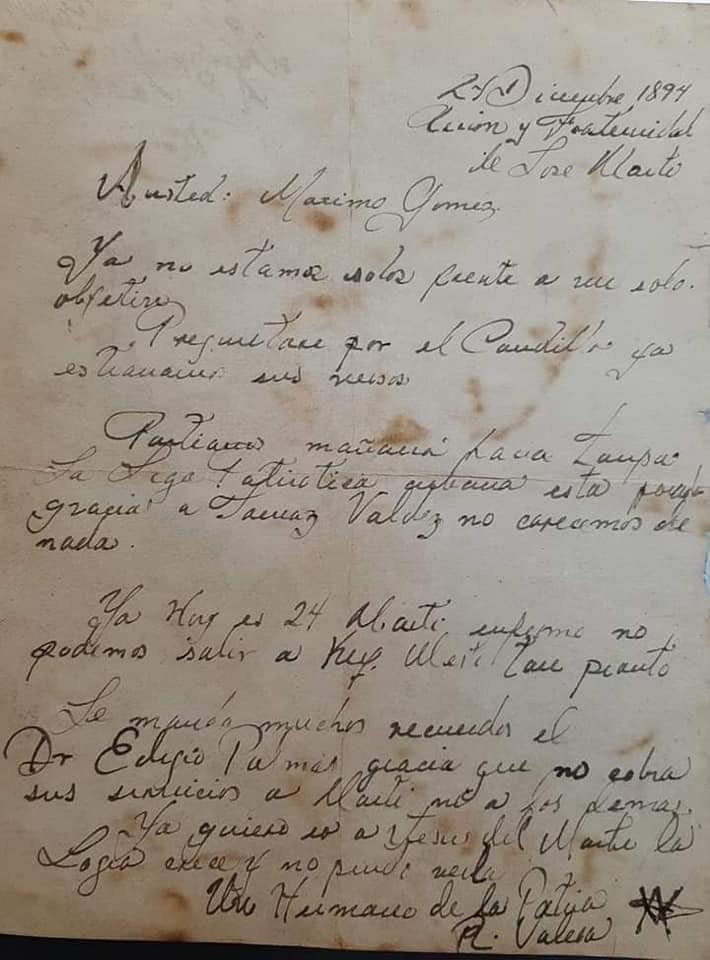 24 Diciembre 1894
Union y Fraternidad
de Jose Marti
A usted: Maximo Gomez
Ya no estamos solos frente a un solo
objetivo
Preguntare por el Caudillo ya
estranamos sus versos
Partiamos mañana para Tampa
La Liga Patriotica cubana esta
gracia a Valdez no carecemos de
nada.
Ya Hoy es 24 Marti enfermo no
podemos salir a Key West tan pronto
Le manda muchos recuerdos el
Dr Eligio Palma gracia que no cobra
sus servicios a Marti ni a los demas.
Ya quiero ir a Jesus del Monte la
Logia crece y no pude verla
Un Hermano de la Patria
R. Valera